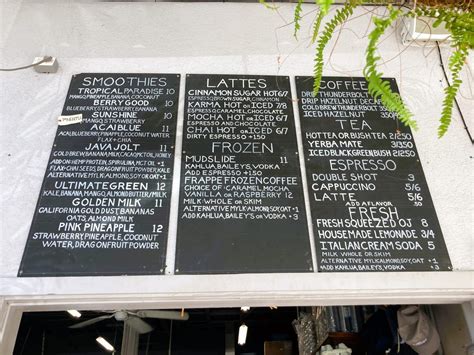 SMOOTHIES
TROPICAL PARADISE 10
MANGO, PINEAPPLE, BANANA, COCONUT
BERRY GOOD 10
BLUEBERRY, STRAWBERRY, BANANA
SUNSHINE 10
MANGO, STRAWBERRY
ACAI BLUE 11
BLUEBERRY, STRAWBERRY, BANANA, COCONUT
FLAX + CHIA
JAVA JOLT 11
COLD BREW, BANANA, MILK, CHOCOLATE
ADD ON HEMP PROTEIN, SPIRULINA, RICE PROTEIN
FLAX+CHIA SEEDS, DRAGONFRUIT POWDER, KALE
ALTERNATIVE MYLK ALMOND, SOY, OAT +1
ULTIMATE GREEN 12
KALE, BANANA, MANGO, ALMOND BUTTER, MYLK
GOLDEN MILK 11
CALIFORNIA GOLD DUST, BANANAS
OATS, ALMOND MILK
PINK PINEAPPLE 12
STRAWBERRY, PINEAPPLE, COCONUT
WATER, DRAGONFRUIT POWDER
LATTES
CINNAMON SUGAR HOT 6/7
ESPRESSO, BROWN SUGAR, CINNAMON
KARMA HOT or ICED 7/8
ESPRESSO, CARAMEL, CHOCOLATE
MOCHA HOT or ICED 6/7
ESPRESSO AND CHOCOLATE
CHAI HOT or ICED 6/7
DIRTY ESPRESSO +3
FROZEN
MUDSLIDE 11
KAHLUA, BAILEY'S, VODKA
ADD ESPRESSO + 3
FRAPPE FROZEN COFFEE
CHOICE OF: CARAMEL, MOCHA
VANILLA or RASPBERRY 12
MILK WHOLE OR SKIM
ALTERNATIVE MYLK ALMOND, SOY, OAT +1
ADD KAHLUA, BAILEY'S or VODKA +3
COFFEE
DRIP THUNDERBOLT
DRIP HAZELNUT DECAF
COLD BREW THUNDERBOLT
ICED HAZELNUT
TEA
HOT TEA OR BUSH TEA 2/2.50
YERBA MATE 3/3.50
ICED BLACK GREEN BUSH 3/3.50
ESPRESSO
DOUBLE SHOT 3
CAPPUCCINO 5/6
LATTE 5/6
ADD A FLAVOR .50
FRESH
FRESH SQUEEZED OJ 8
HOUSE MADE LEMONADE 3/4
ITALIAN CREAM SODA 5
MILK WHOLE OR SKIM
ALTERNATIVE MYLK ALMOND, SOY, OAT +1
ADD KAHLUA, BAILEY'S, VODKA